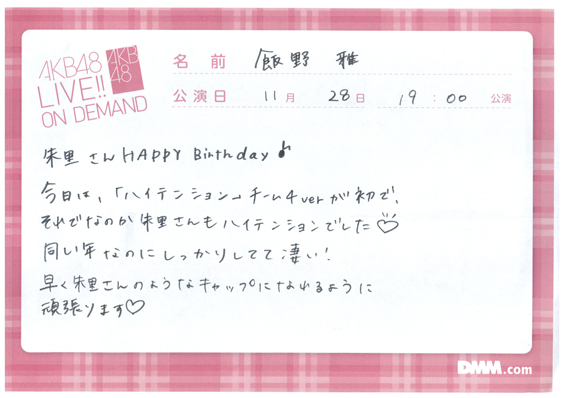 AKB48
LIVE!!
ON DEMAND
AKB
48
名前 飯野 雅
公演日 11月 28日 19:00 公演
朱里さん HAPPY Birthday♪
今日は、「ハイテンション」チーム4verが初で、
それでなのか朱里さんもハイテンションでした♡
同い年なのにしっかりしてて凄い!
早く朱里さんのようなキャップになれるように
頑張ります♡
DMM.com